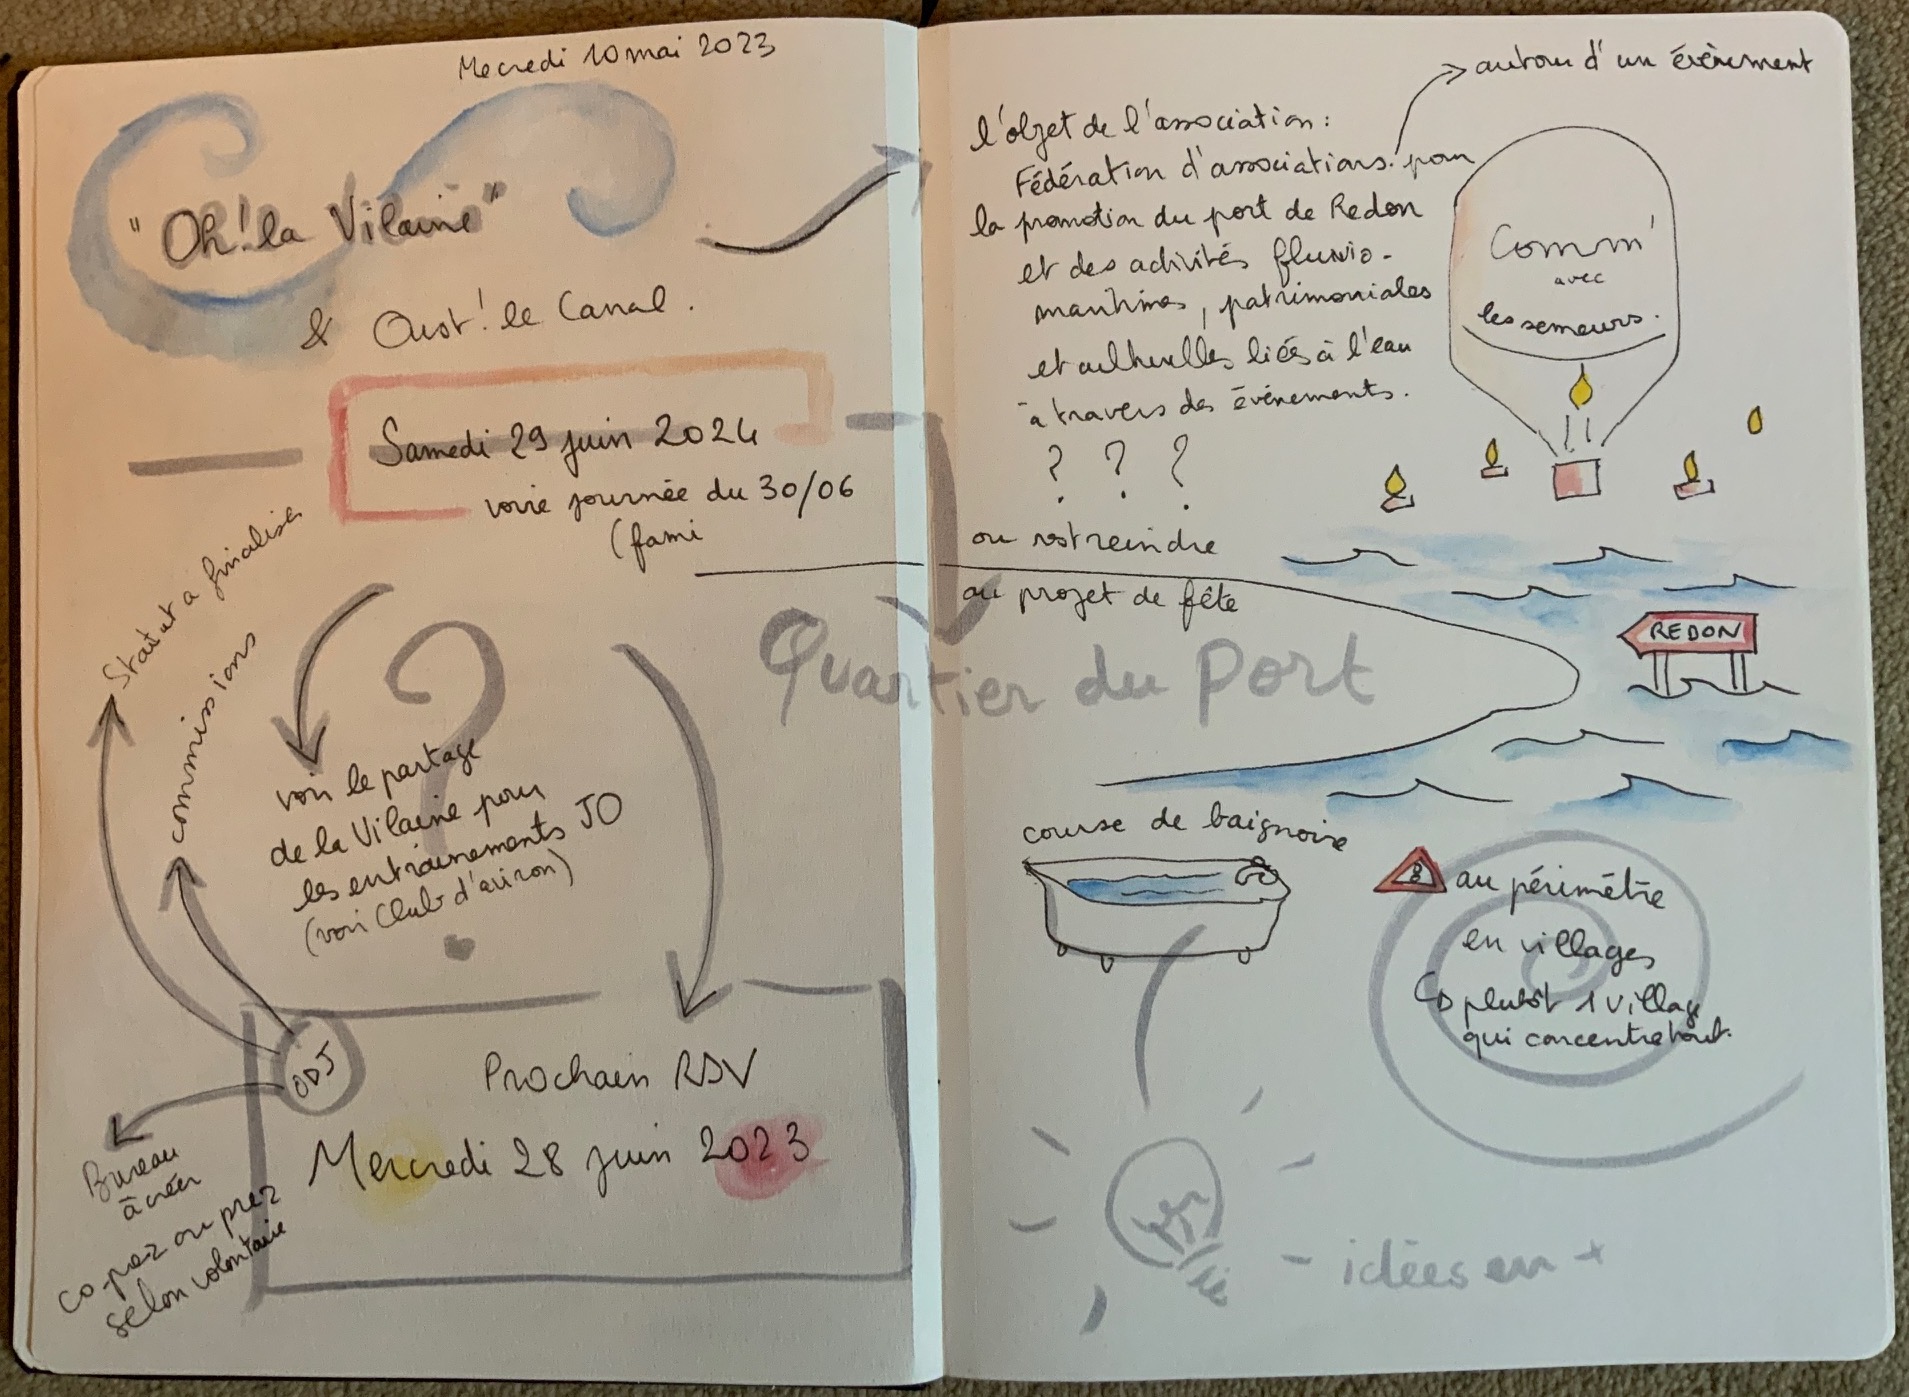 Mecredi 10 mai 2023
"Oh! la Vilaine"
& Oust! le Canal.
Samedi 29 juin 2024
voire journée du 30/06
(fami
Statut a finaliser
commissions
voir le partage
de la Vilaine pour
les entrainements JO
(voir Club d'aviron)
ODJ
Bureau
à créer
co-prez ou prez
selon volontaire
Prochain RDV
Mercredi 28 juin 2023
autour d'un évènement
l'objet de l'association :
Fédération d'associations. pour
la promotion du port de Redon
et des activités fluvio-
maritimes, patrimoniales
et culturelles liés à l'eau
à travers des événements.
? ? ?
ou restreindre
au projet de fête
Comm'
avec
les semeurs.
REDON
Quartier du Port
course de baignoire
au périmètre
en villages
plutôt 1 village
qui concentre tout.
- idées en +